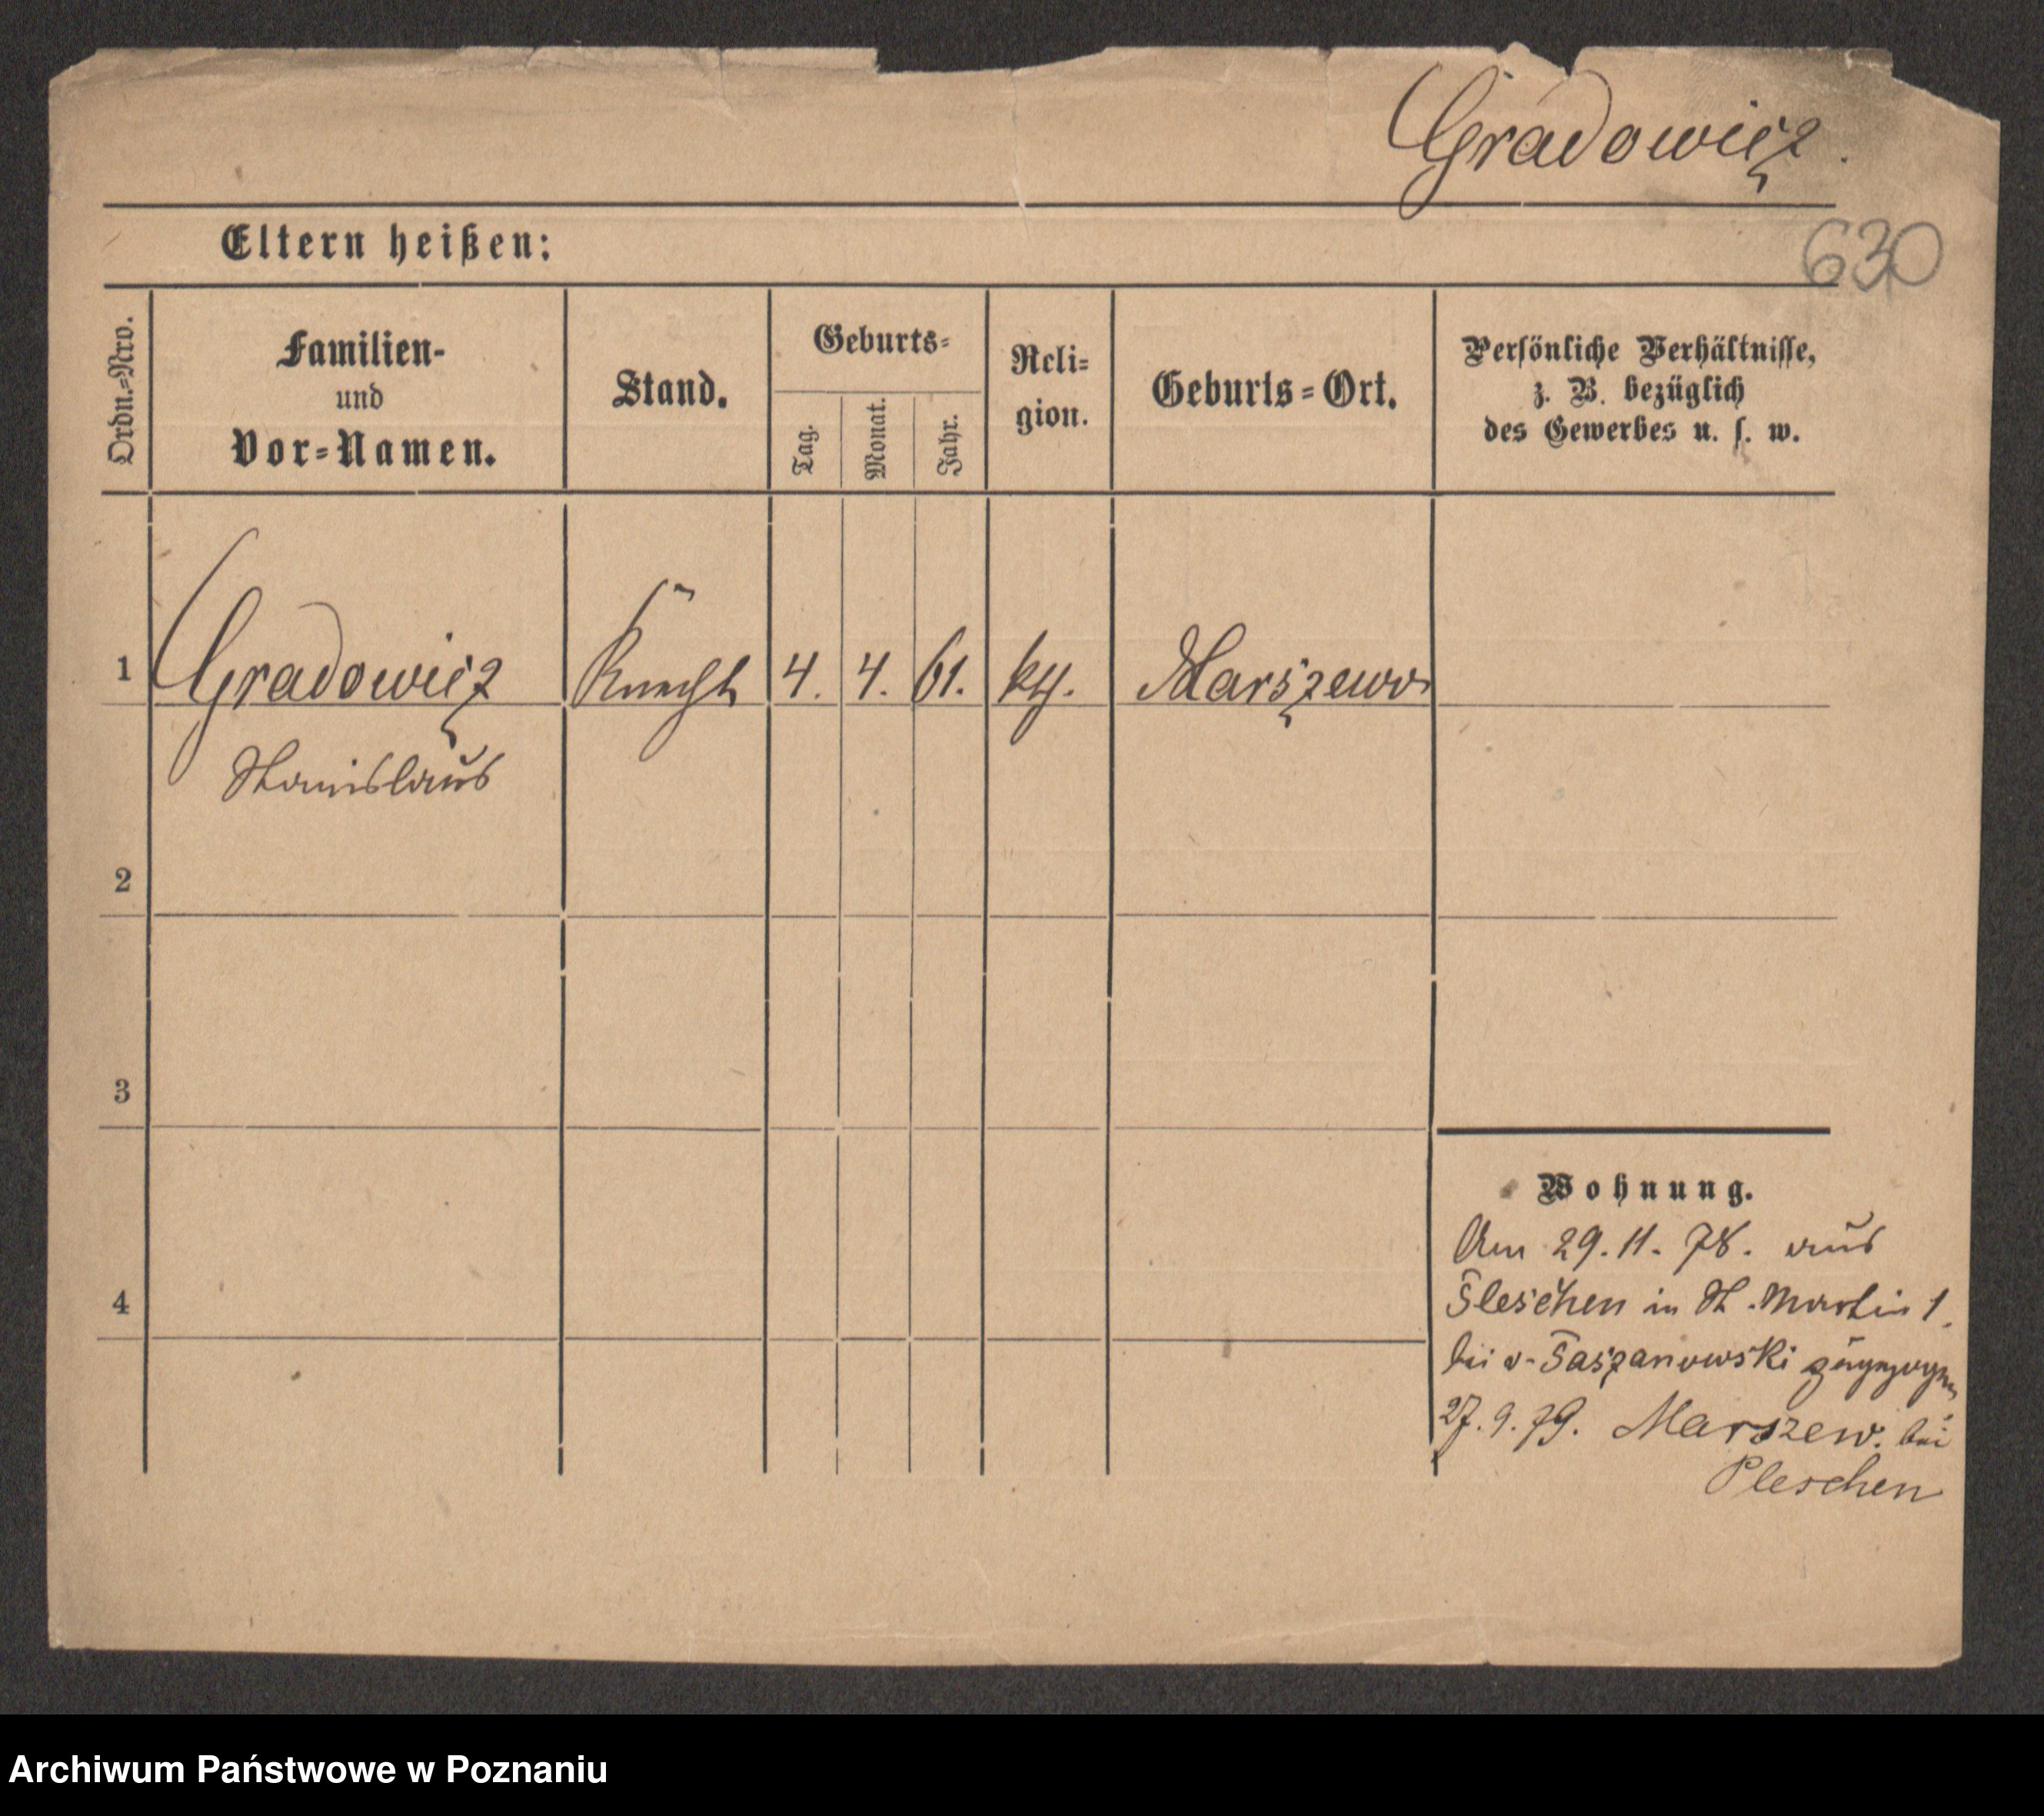 Gradowicz.
630
Eltern heißen:
Ordn.=Nro.
Familien-
und
Vor=Namen.
Stand.
Geburts=
Tag.
Monat.
Jahr.
Reli=
gion.
Geburts=Ort.
Persönliche Verhältnisse,
z. B. bezüglich
des Gewerbes u. s. w.
1 Gradowicz Knecht 4. 4. 61. kth. Marszewo
Stanislaus
2
3
4
Wohnung.
Am 29.11.78. aus
Pleschen in St. Martin 1.
bei v. Taszanowski zugezogen
27.9.79. Marszew. bei
Pleschen
Archiwum Państwowe w Poznaniu